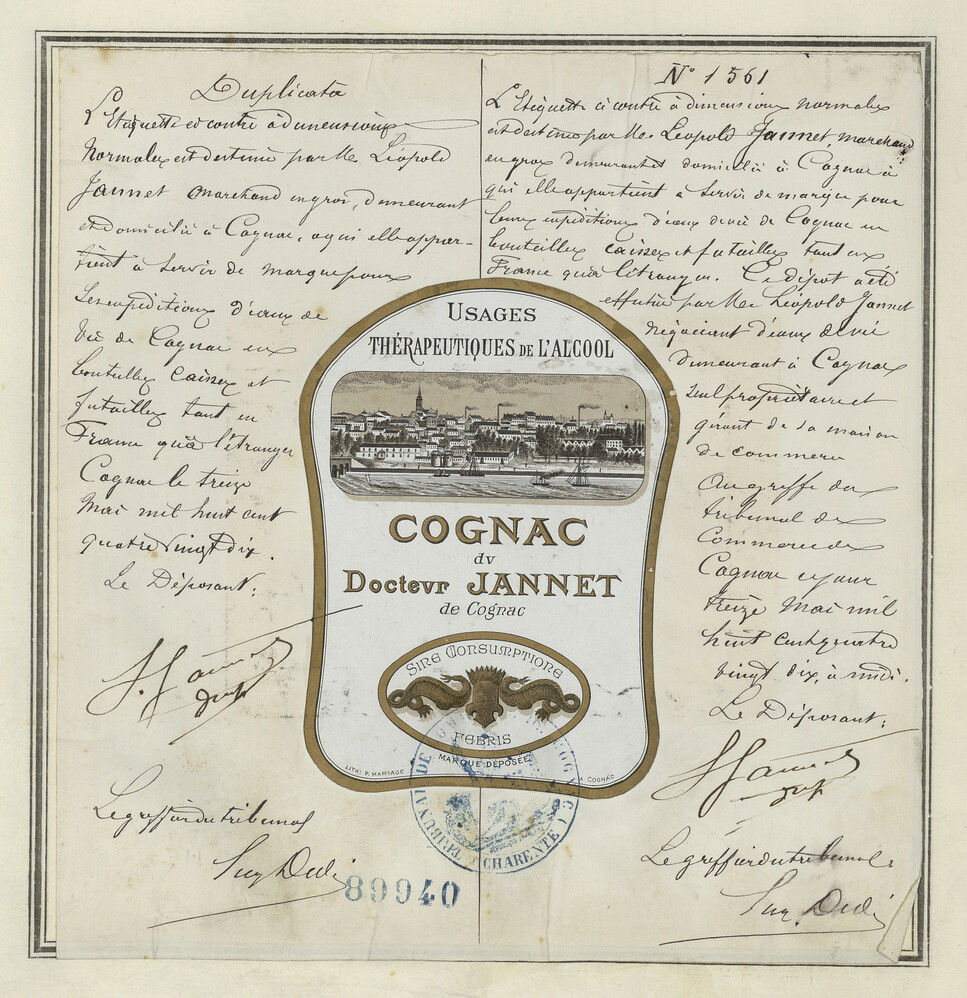 Duplicata
L'Etiquette ci contre à dimensions
Normales est destinée par Mr Léopold
Jannet marchand en gros, demeurant
et domicilié à Cognac, a qui elle appar-
tient à servir de marque pour
Les expéditions d'eaux de
vie de Cognac en
bouteilles caisses et
futailles tant en
France qu'à l'étranger
Cognac le treize
Mai mil huit cent
quatre vingt dix.
Le Déposant:
Le greffier du tribunal
89940
N° 1561
L'Etiquette ci contre à dimensions normales
est destinée par Mr Léopold Jannet, marchand
en gros demeurant et domicilié à Cognac à
qui elle appartient a servir de marque pour
leurs expéditions d'eaux de vie de Cognac en
bouteilles caisses et futailles tant en
France qu'à l'étranger. Ce dépot a été
effectué par Mr Léopold Jannet
négociant d'eaux de vie
demeurant à Cognac
seul propriétaire et
gérant de sa maison
de commerce
Au greffe du
tribunal de
Commerce de
Cognac ce jour
treize Mai mil
huit cent quatre
vingt dix, à midi.
Le Déposant:
Le greffier du tribunal:
USAGES
THÉRAPEUTIQUES DE L'ALCOOL
COGNAC
dv
Doctevr JANNET
de Cognac
SINE CONSUMPTIONE
FEBRIS
MARQUE DÉPOSÉE
LITH: P. MARIAGE
COGNAC
CHARENTE